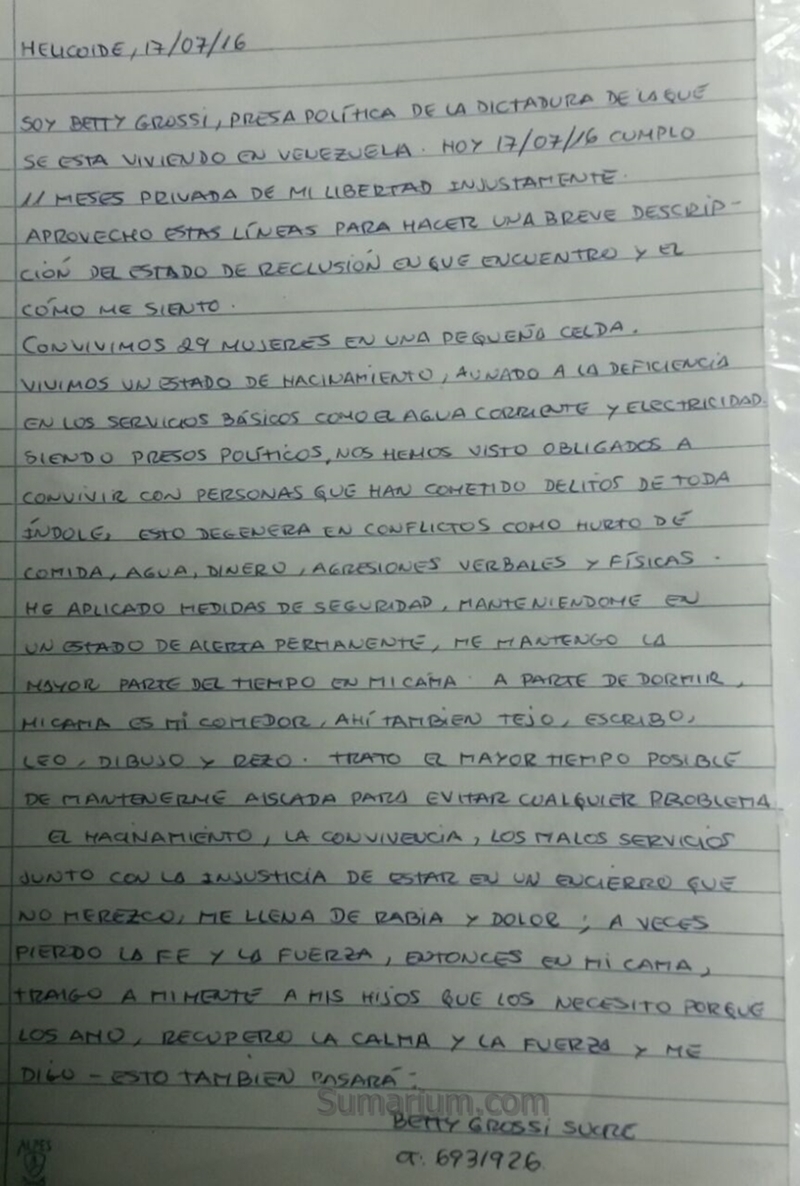 HELICOIDE, 17/07/16
SOY BETTY GROSSI, PRESA POLÍTICA DE LA DICTADURA DE LA QUE
SE ESTA VIVIENDO EN VENEZUELA. HOY 17/07/16 CUMPLO
11 MESES PRIVADA DE MI LIBERTAD INJUSTAMENTE.
APROVECHO ESTAS LÍNEAS PARA HACER UNA BREVE DESCRIP-
CIÓN DEL ESTADO DE RECLUSIÓN EN QUE ENCUENTRO Y EL
CÓMO ME SIENTO.
CONVIVIMOS 29 MUJERES EN UNA PEQUEÑA CELDA.
VIVIMOS UN ESTADO DE HACINAMIENTO, AUNADO A LA DEFICIENCIA
EN LOS SERVICIOS BÁSICOS COMO EL AGUA CORRIENTE Y ELECTRICIDAD.
SIENDO PRESOS POLÍTICOS, NOS HEMOS VISTO OBLIGADOS A
CONVIVIR CON PERSONAS QUE HAN COMETIDO DELITOS DE TODA
ÍNDOLE, ESTO DEGENERA EN CONFLICTOS COMO HURTO DE
COMIDA, AGUA, DINERO, AGRESIONES VERBALES Y FÍSICAS.
HE APLICADO MEDIDAS DE SEGURIDAD, MANTENIENDOME EN
UN ESTADO DE ALERTA PERMANENTE, ME MANTENGO LA
MAYOR PARTE DEL TIEMPO EN MI CAMA. A PARTE DE DORMIR,
MI CAMA ES MI COMEDOR, AHÍ TAMBIEN TEJO, ESCRIBO,
LEO, DIBUJO Y REZO. TRATO EL MAYOR TIEMPO POSIBLE
DE MANTENERME AISLADA PARA EVITAR CUALQUIER PROBLEMA
EL HACINAMIENTO, LA CONVIVENCIA, LOS MALOS SERVICIOS
JUNTO CON LA INJUSTICIA DE ESTAR EN UN ENCIERRO QUE
NO MEREZCO, ME LLENA DE RABIA Y DOLOR; A VECES
PIERDO LA FE Y LA FUERZA, ENTONCES EN MI CAMA,
TRAIGO A MI MENTE A MIS HIJOS QUE LOS NECESITO PORQUE
LOS AMO, RECUPERO LA CALMA Y LA FUERZA Y ME
DIGO - ESTO TAMBIEN PASARÁ-.
Sumarium.com
BETTY GROSSI SUCRE
CI: 6931926
ALPES